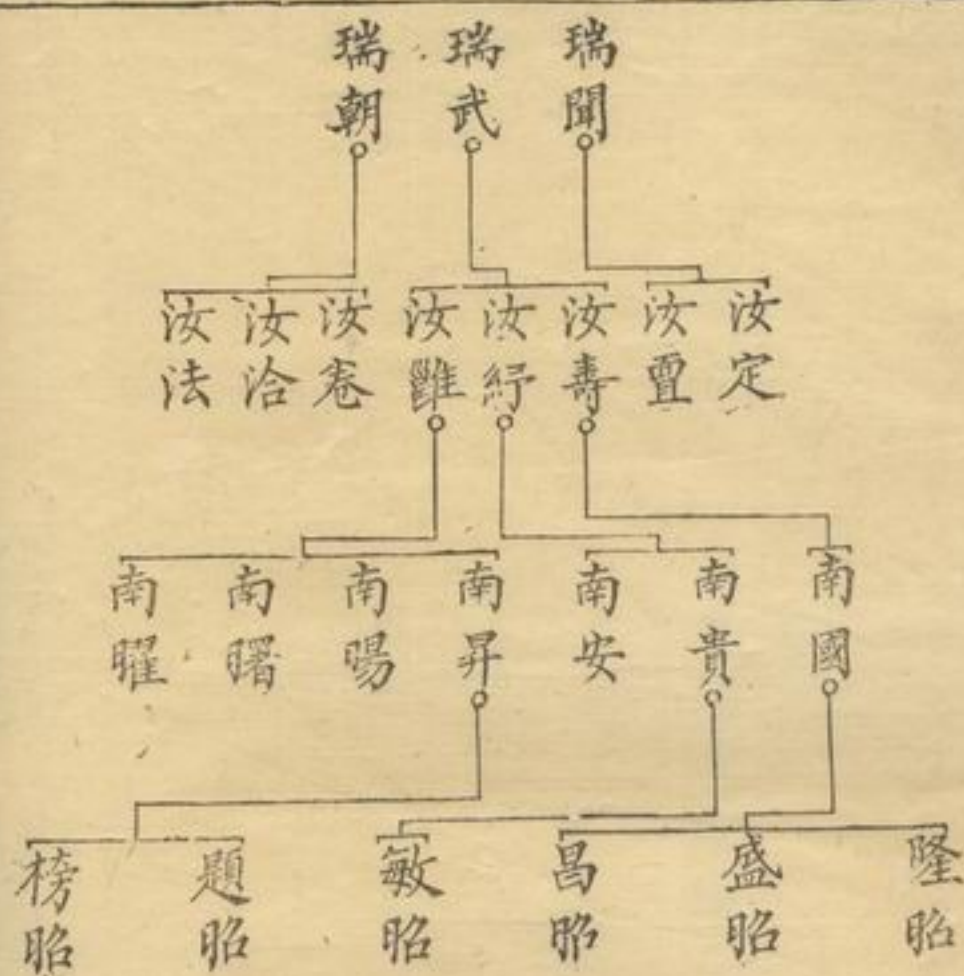 瑞聞
瑞武
瑞朝
汝定
汝置
汝壽
汝紓
汝雝
汝卷
汝洽
汝法
南國
南貴
南安
南昇
南暘
南曙
南曜
隆昭
盛昭
昌昭
敏昭
題昭
榜昭